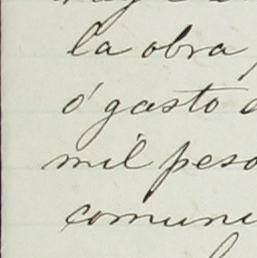 la obra
ó gasto
mil peso
comuni